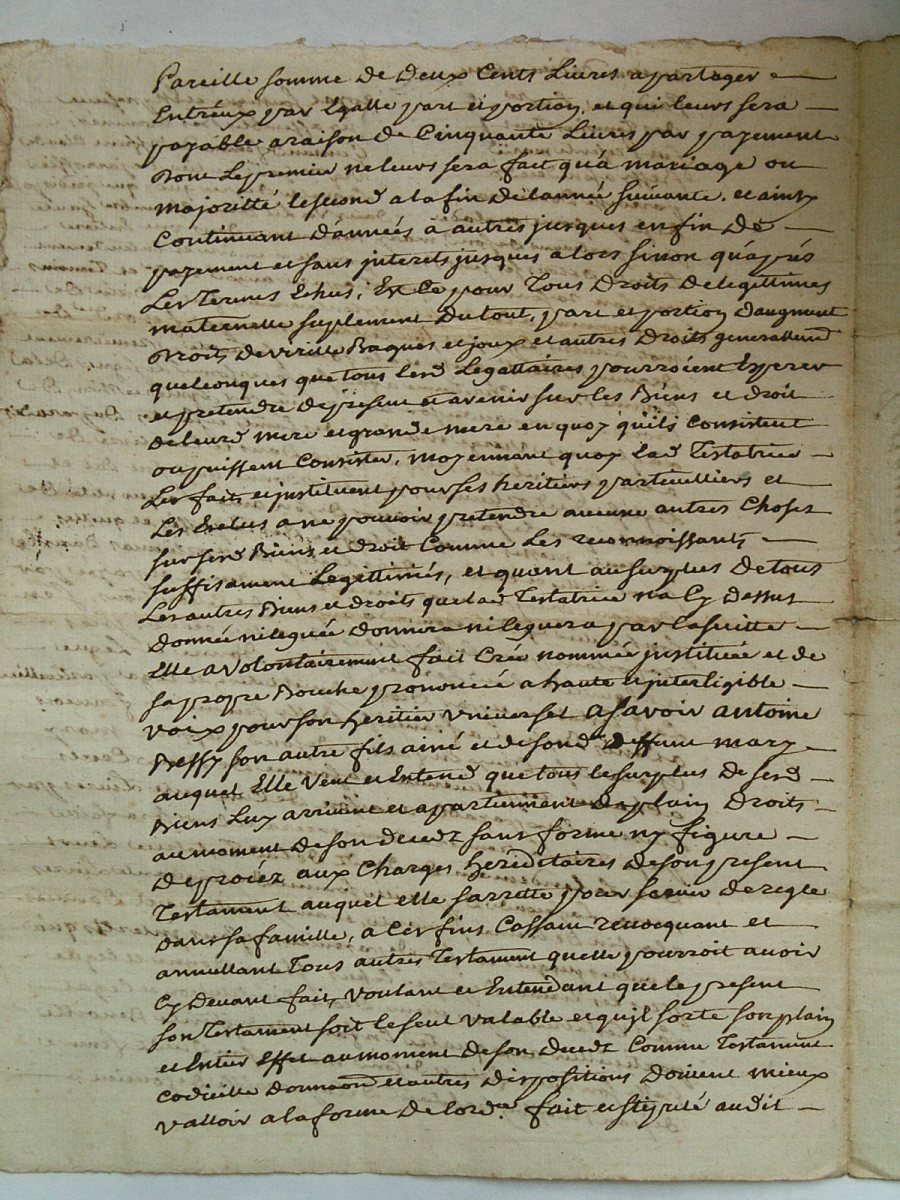 Pareille somme de deux Cents Livres a partager
Entréux par Egalle part et portion, et qui leurs sera
payable a raison de Cinquante Livres par payement
dont Le premier ne leurs sera fait qu'a mariage ou
majoritté le second a la fin de lannéé suivante, et ainsy
Continuant d'annéés à autres jusques en fin de
payement et sans jnterets jusques alors sinon qu'aprés
Les Termes Echus, Est Ce pour Tous Droits de legittimes
maternelle suplement du tout, part et portion D'augment
Droits de virille Bagues et joux et autres Droits generallemt
quelconques que tous lesd Legattaires pourroient Esperer
et pretendre de present et avenir sur les Biens et droit
de leurd mere et grande mere en quoy qu'ils Consistent
ou puissent Consister, moyennant quoy Lad Testatrice
Les fait et jnstituent pour ses heritiers particulliers et
Les Exclus a ne pouvoir pretendre aucune autres Choses
sur sesd Biens et droit Comme Les reconnoissants
suffisament Legittimés, et quant au surplus de tous
Les autres Biens et droits que lad Testatrice na Cy dessus
donnée ni leguée donnera ni leguera par la suitte
Elle a volontairement fait Créé nommée jnstituée et de
sa propre Bouche prononcéé a haute et jnteligible
voix pour son heritier universel asavoir antoine
Bessy son autre fils ainé et desond deffunt mary
auquel Elle veut et Entend que tous le surplus de sesd
Biens Luy arrivent et apartiennent de plain Droits
au moment de son decedz sans forme ny figure
de procéz aux Charges hereditaires de son present
Testament auquel elle sarrette pour servir de regle
dans sa famille, a Ces fins Cassant revocquant et
annullant Tous autres Testament quelle pourroit avoir
Cy Devant fait, voulant et Entendant que le present
son Testament soit le seul valable et qu'jl sorte son plain
et Entier Effet au moment de son decedz Comme Testament
Codicille donnaon et autres dispositions doivent mieux
valloir a la forme de lord.ce fait et stipulé audit